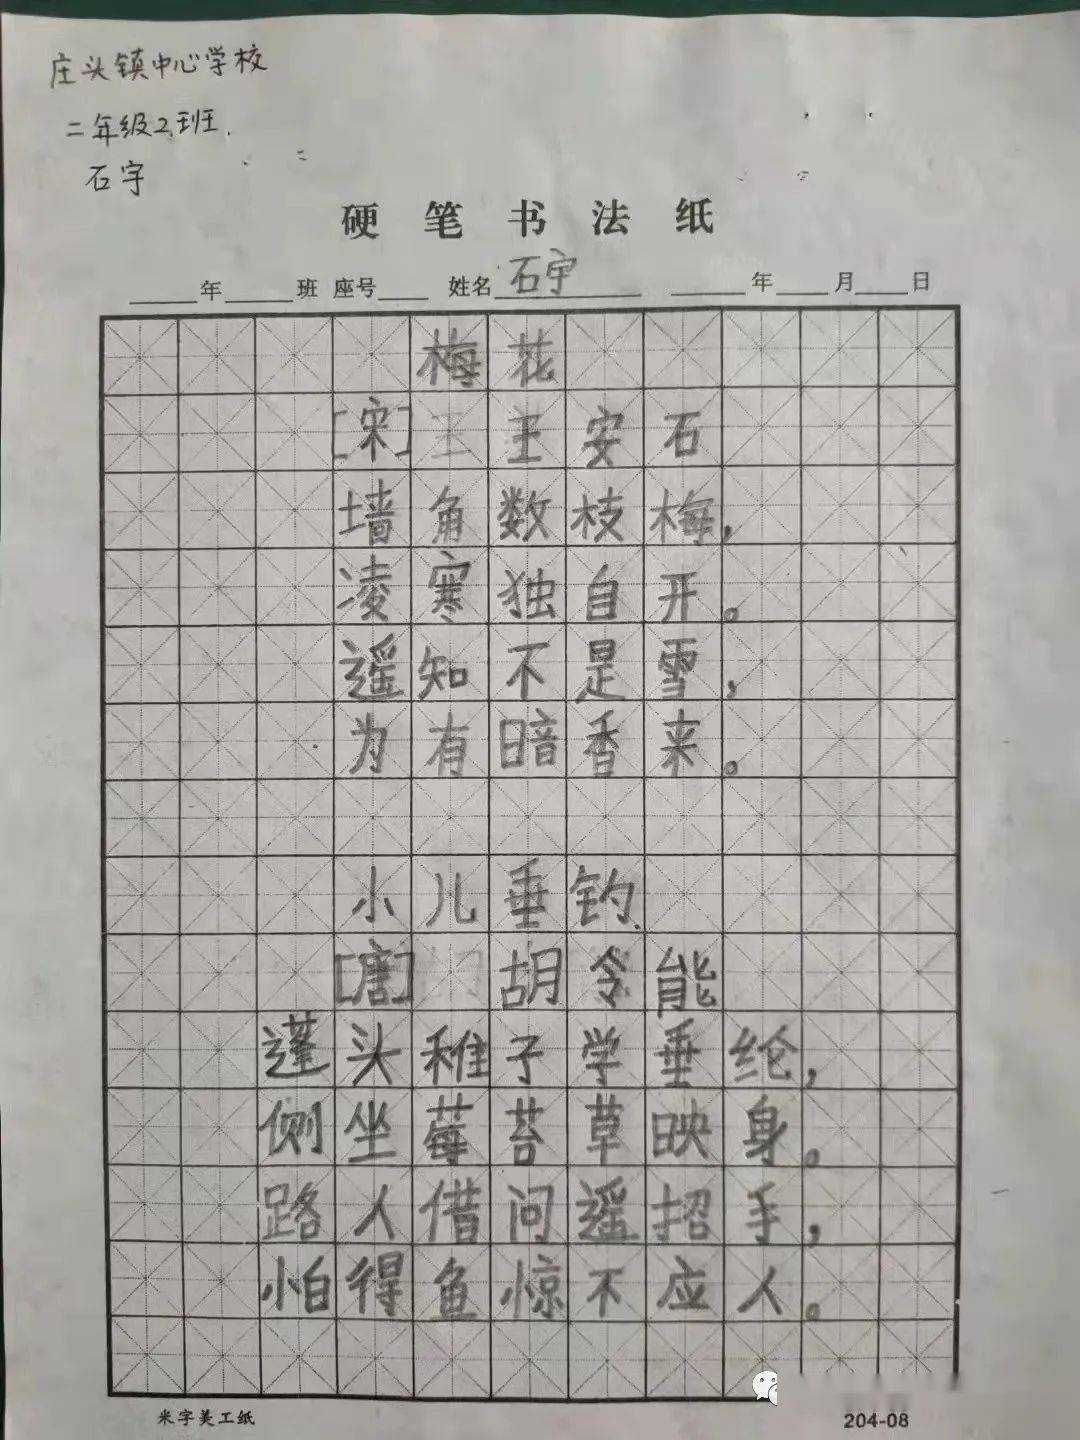 庄头镇中心学校
二年级2班.
石宇
硬笔书法纸
年 班 座号 姓名 石宇 年 月 日
梅花
[宋] 王安石
墙角数枝梅,
凌寒独自开。
遥知不是雪,
为有暗香来。
小儿垂钓
[唐] 胡令能
蓬头稚子学垂纶,
侧坐莓苔草映身。
路人借问遥招手,
怕得鱼惊不应人。
米字美工纸
204-08